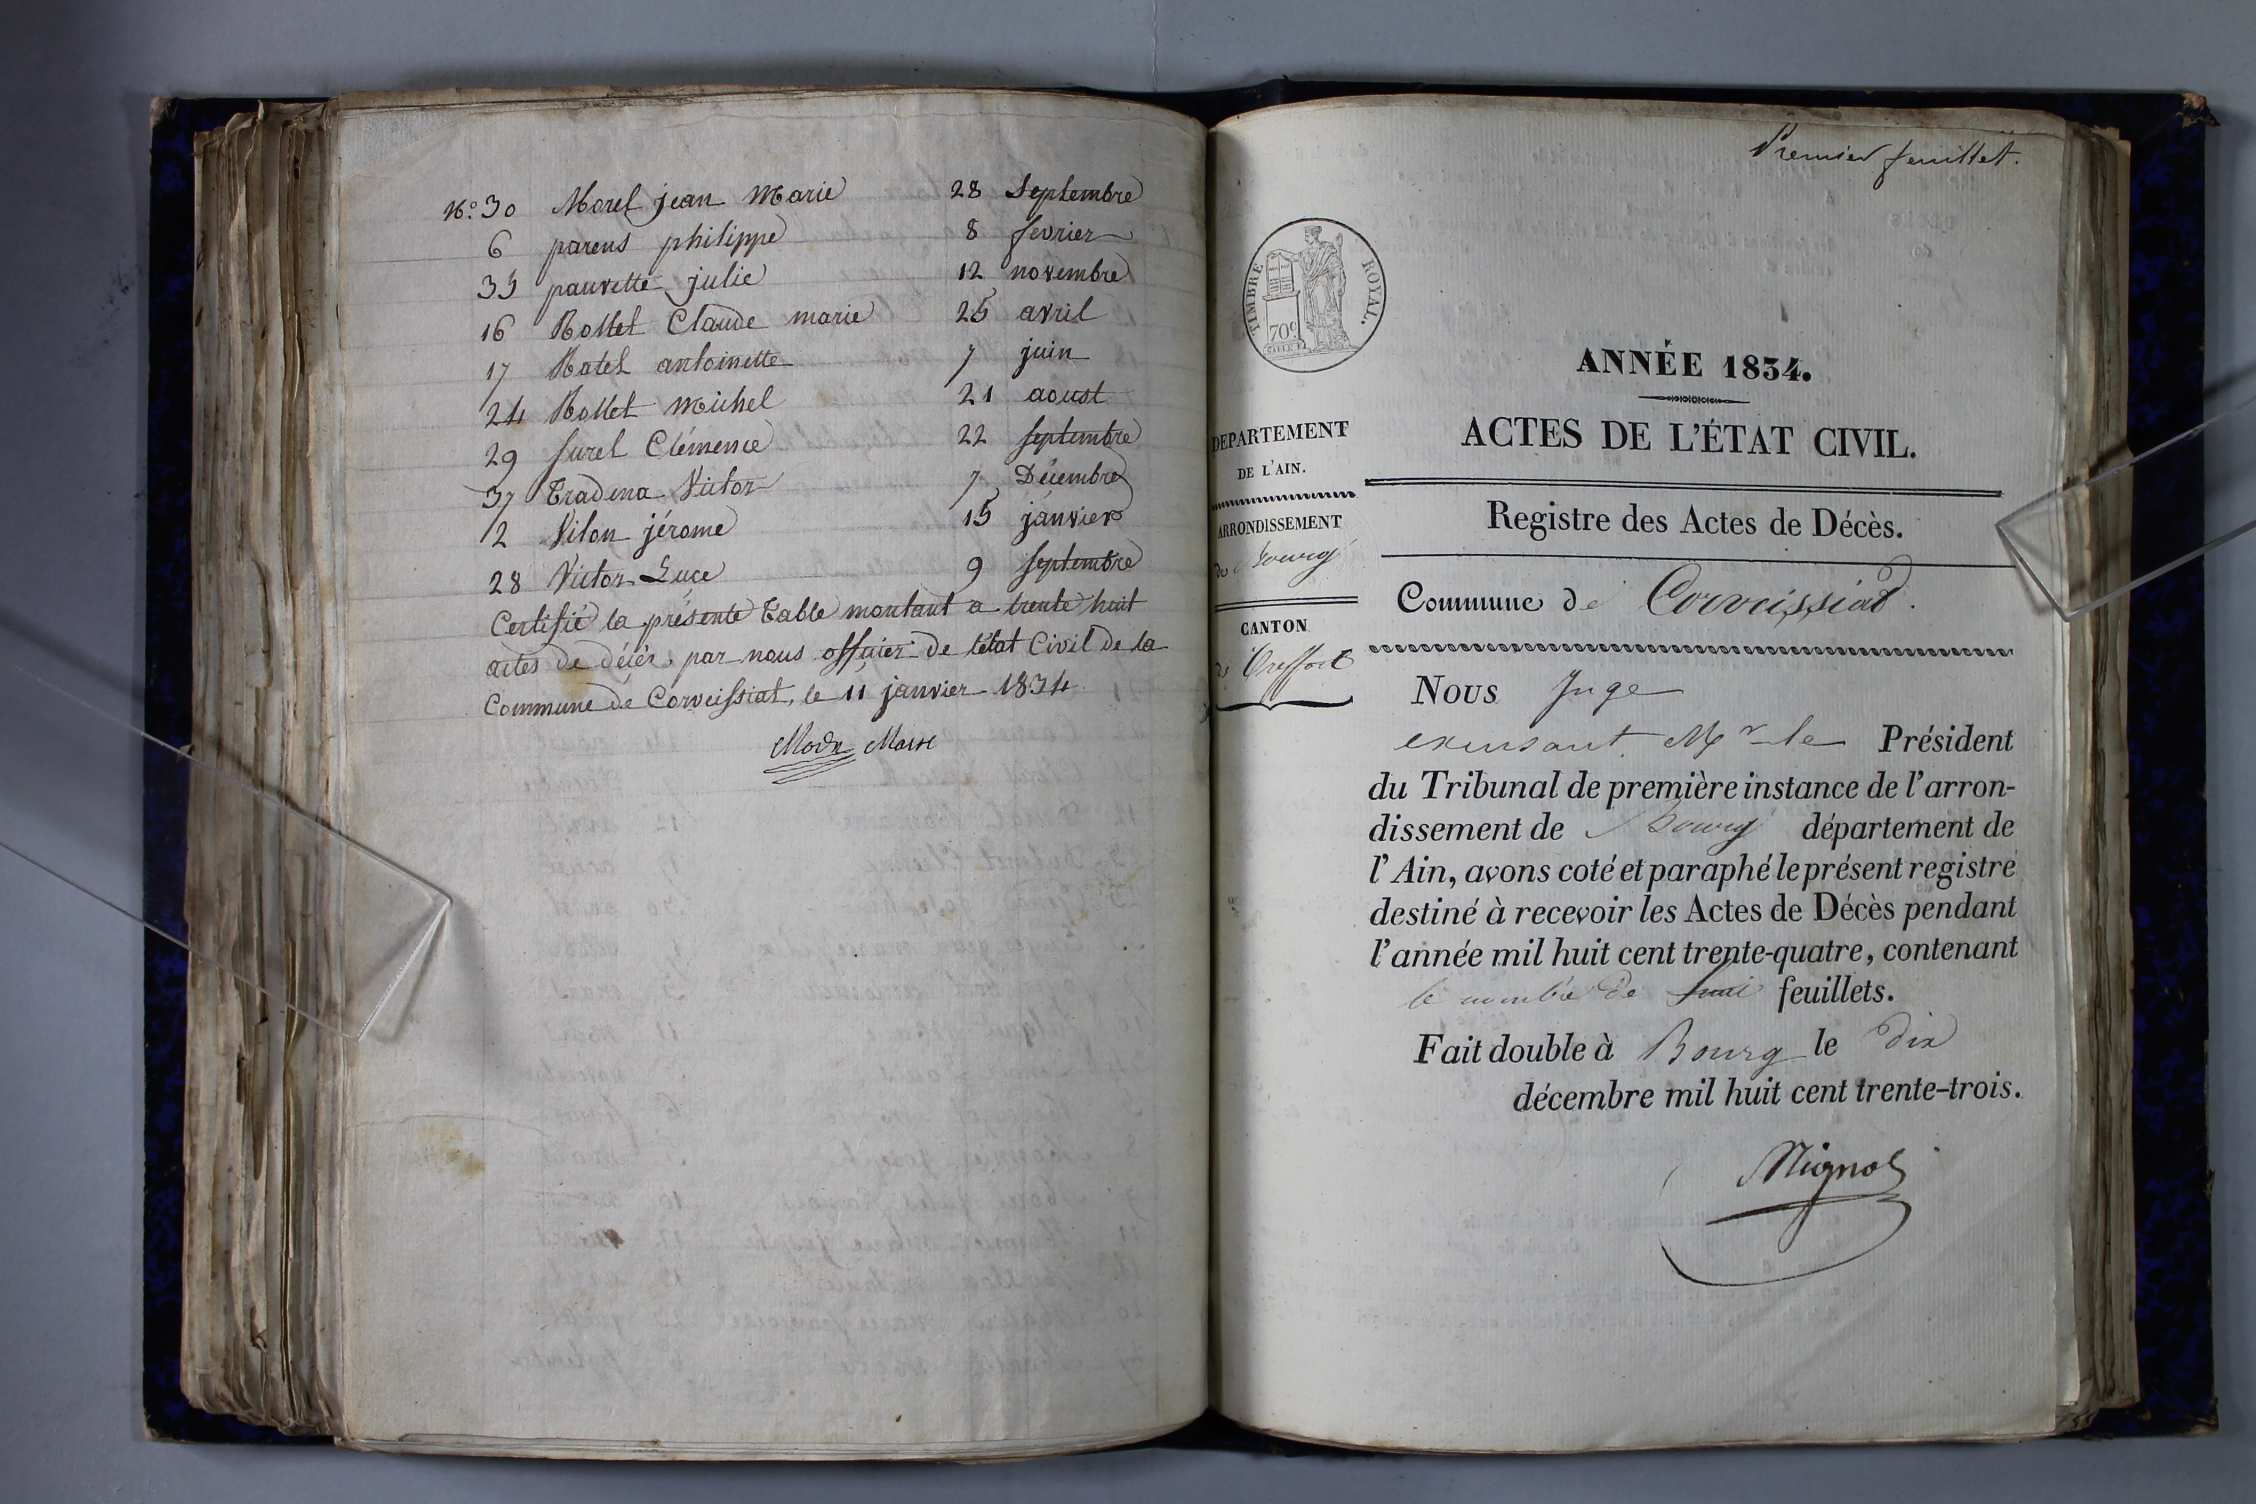 N.o 30 Morel jean Marie 28 Septembre
6 parens philippe 8 fevrier
33 pauvette julie 12 novembre
16 Rollet Claude marie 25 avril
17 Ratel antoinette 7 juin
24 Rollet Michel 21 aoust
29 Surel Clémence 22 septembre
37 Victor 7 Décembre
2 Vilon jérome 15 janvier
28 Victor Luce 9 septembre
Certifié la présente Table montant a trente huit
actes de décés, par nous officier de l'état Civil de la
Commune de Corveissiat, le 11 janvier 1834
Maire
Premier feuillet.
TIMBRE ROYAL.
70c
ANNÉE 1834.
ACTES DE L'ÉTAT CIVIL.
Registre des Actes de Décès.
Commune de Corveissiat.
DÉPARTEMENT
DE L'AIN.
ARRONDISSEMENT
de Bourg
CANTON
de Treffort
Nous Juge
exerçant Mr le Président
du Tribunal de première instance de l'arron-
dissement de Bourg département de
l'Ain, avons coté et paraphé le présent registre
destiné à recevoir les Actes de Décès pendant
l'année mil huit cent trente-quatre, contenant
le nombre de huit feuillets.
Fait double à Bourg le dix
décembre mil huit cent trente-trois.